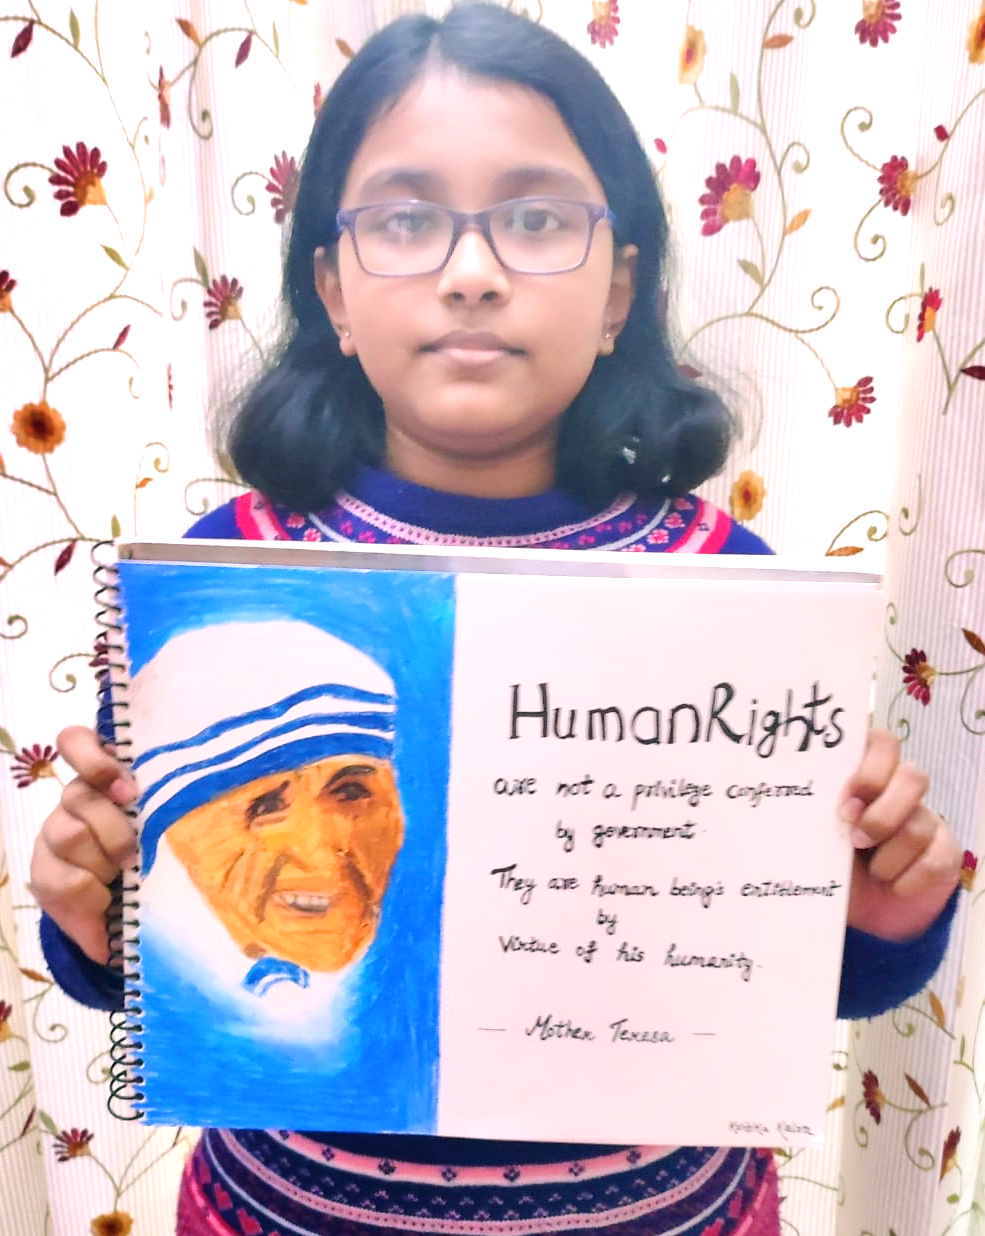 Human Rights
are not a privilege conferred
by government.
They are human being's entitlement
by
Virtue of his humanity.
— Mother Teresa —